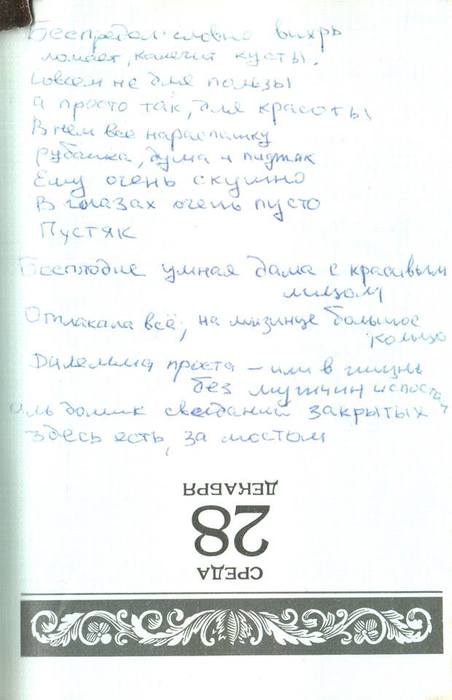 Беспредел словно вихрь
ломает, калечит кусты.
Совсем не для пользы
а просто так, для красоты
В нём всё нараспашку
рубашка, душа и пиджак
Ему очень скушно
В глазах очень пусто
Пустяк
Бесплодие умная дама с красивым
лицом
Отплакала всё, на мизинце большое
кольцо
Дилемма проста – или в жизнь
без мужчин
Иль домик свиданий закрытых
здесь есть, за мостом
28
ДЕКАБРЯ
СРЕДА